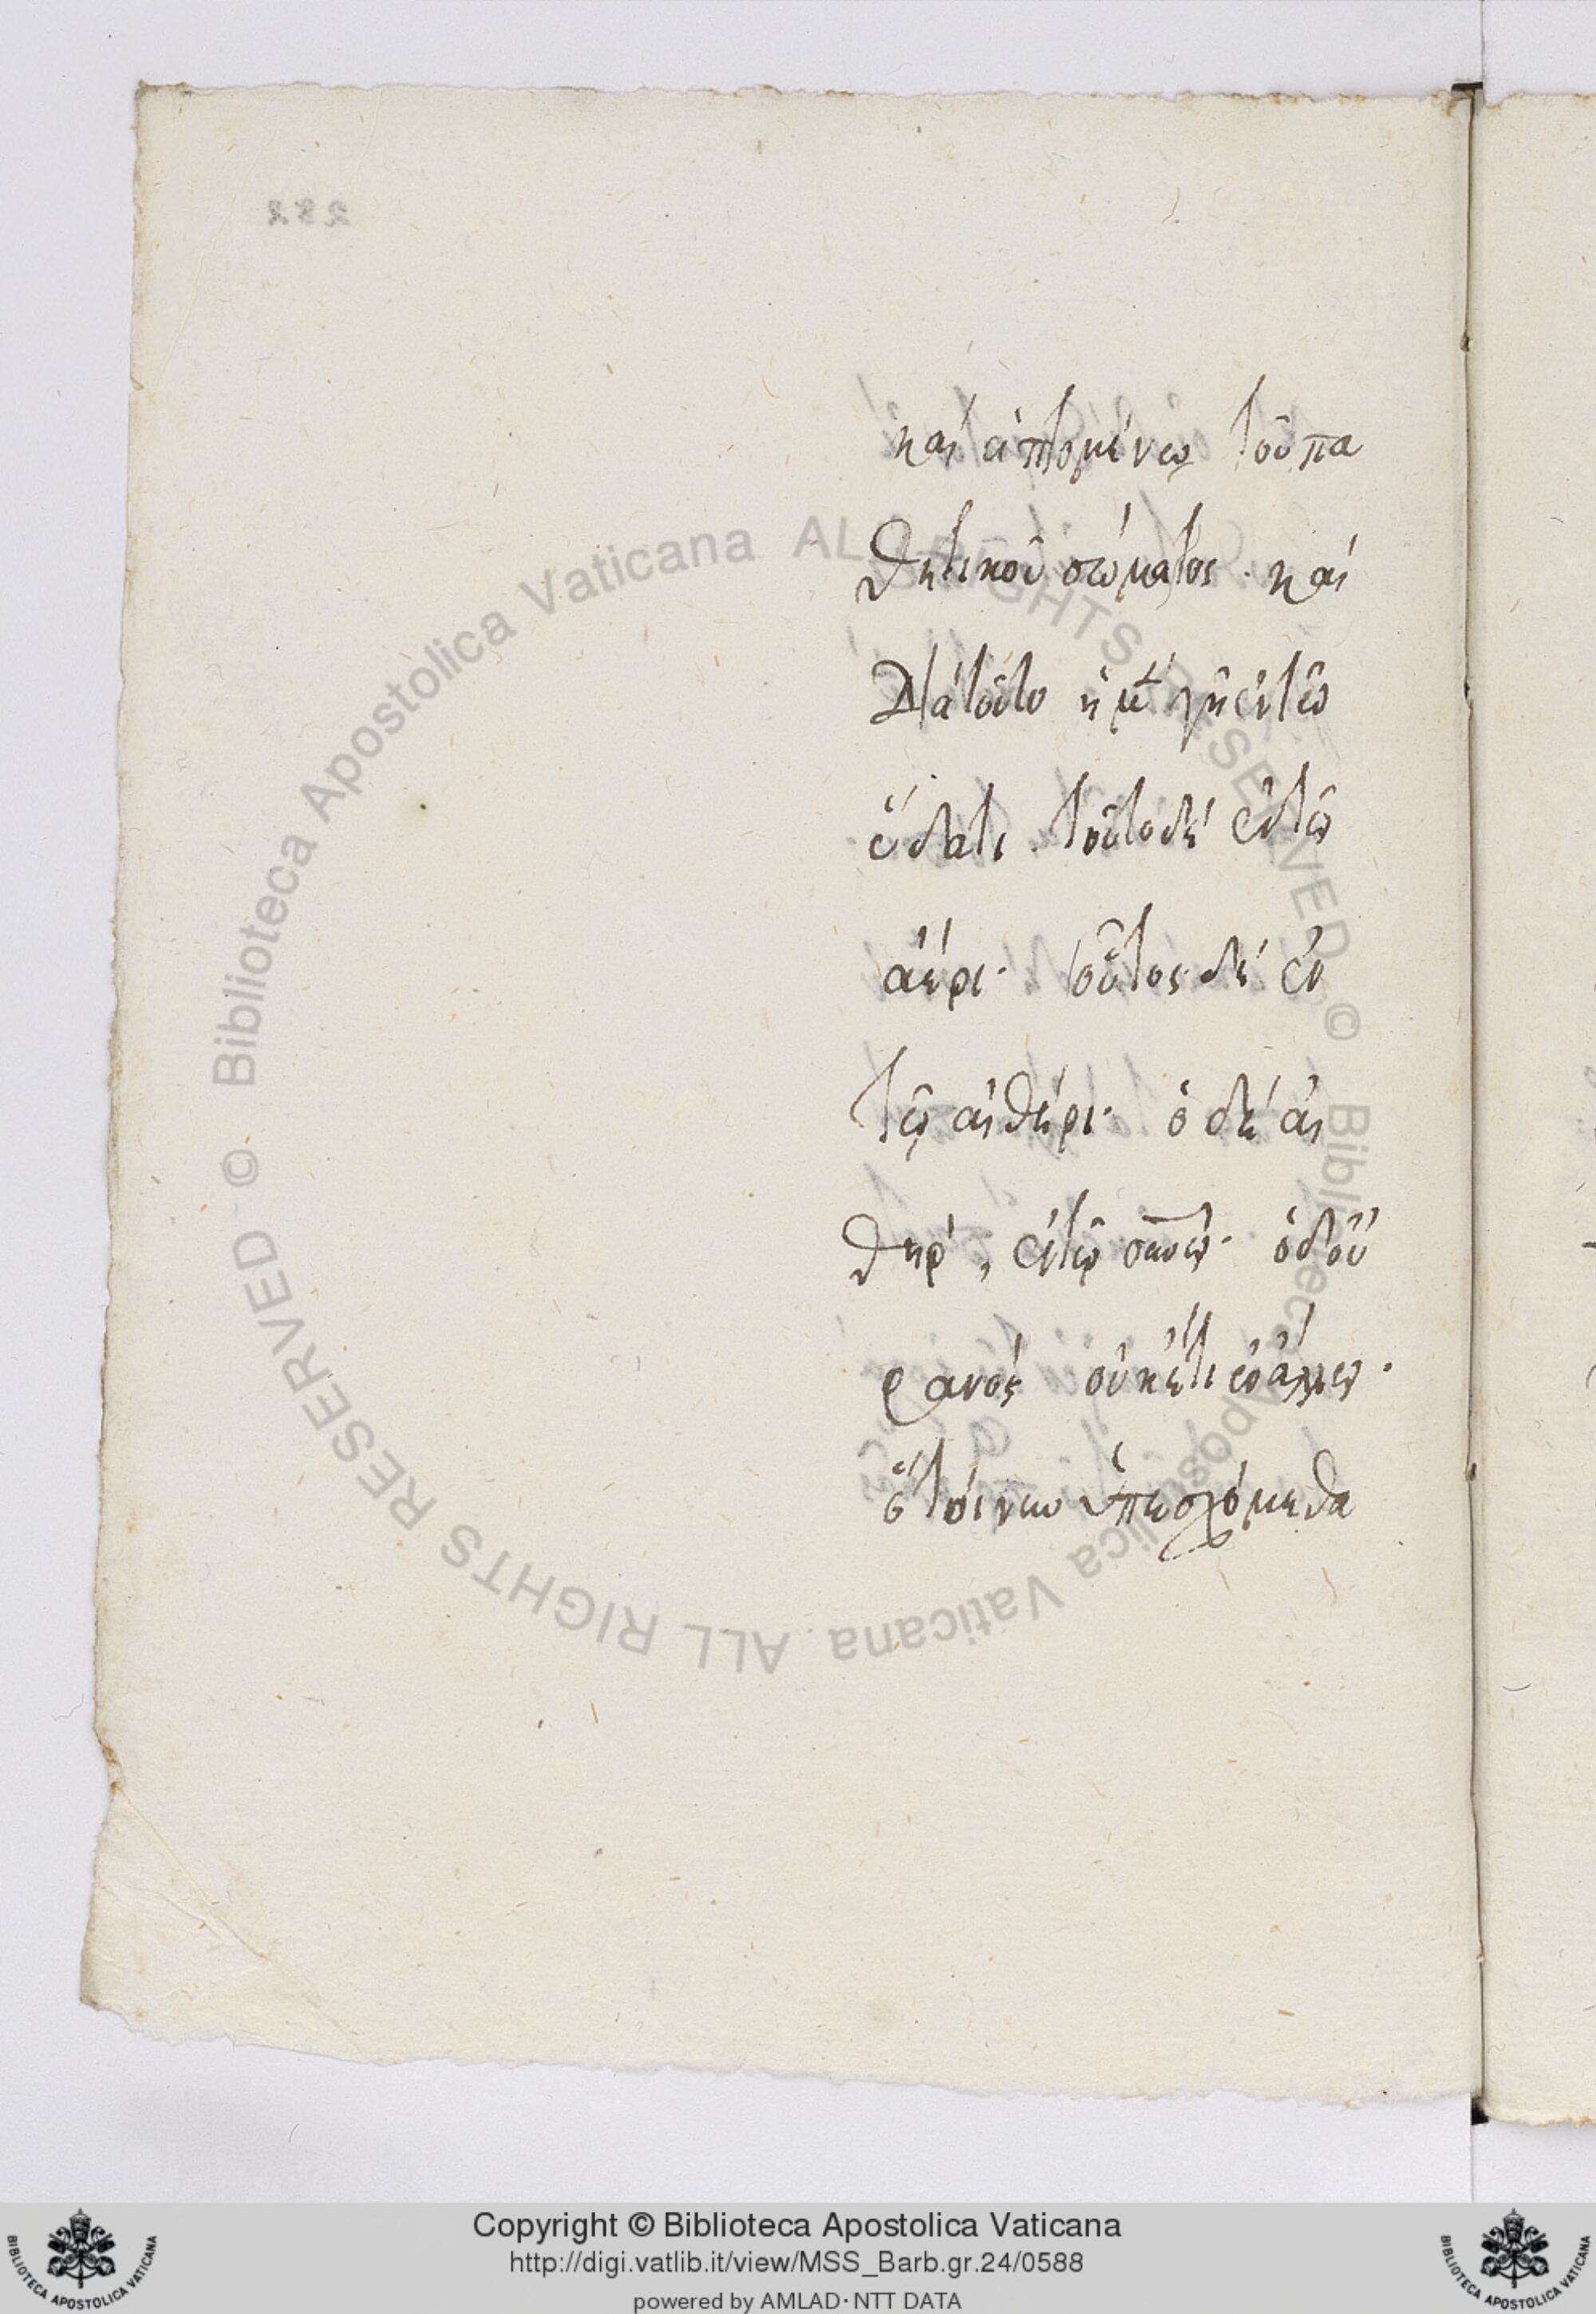 282
καὶ ἁπτομένῳ τοῦ πα
θητικοῦ σώματος · καὶ
Διὰ τοῦτο ἡ μὲν γῆ ἐν τῷ
ὕδατι · τοῦτο δὲ ἐν τῷ
ἀέρι · οὗτος δὲ ἐν
τῷ αἰθέρι · ὁ δὲ αἰ
θὴρ, ἐν τῷ οὐνῷ · ὁ δ' οὐ
ρανὸς οὐκέτι ἐν ἄλλῳ ·
ὃ τοίνυν ὑπεσχόμεθα
© Biblioteca Apostolica Vaticana ALL RIGHTS RESERVED © Biblioteca Apostolica Vaticana ALL RIGHTS RESERVED
Copyright © Biblioteca Apostolica Vaticana
http://digi.vatlib.it/view/MSS_Barb.gr.24/0588
powered by AMLAD · NTT DATA
BIBLIOTECA APOSTOLICA VATICANA
BIBLIOTECA APOSTOLICA VATICANA